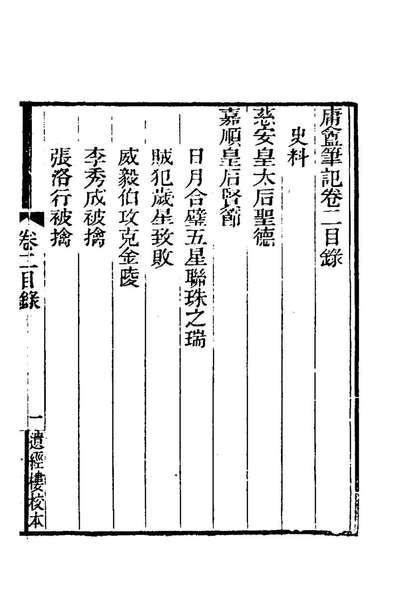 庸盦筆記卷二目錄
史料
慈安皇太后聖德
嘉順皇后賢節
日月合璧五星聯珠之瑞
賊犯歲星致敗
威毅伯攻克金陵
李秀成被擒
張洛行被擒
卷二目錄
一
遺經樓校本